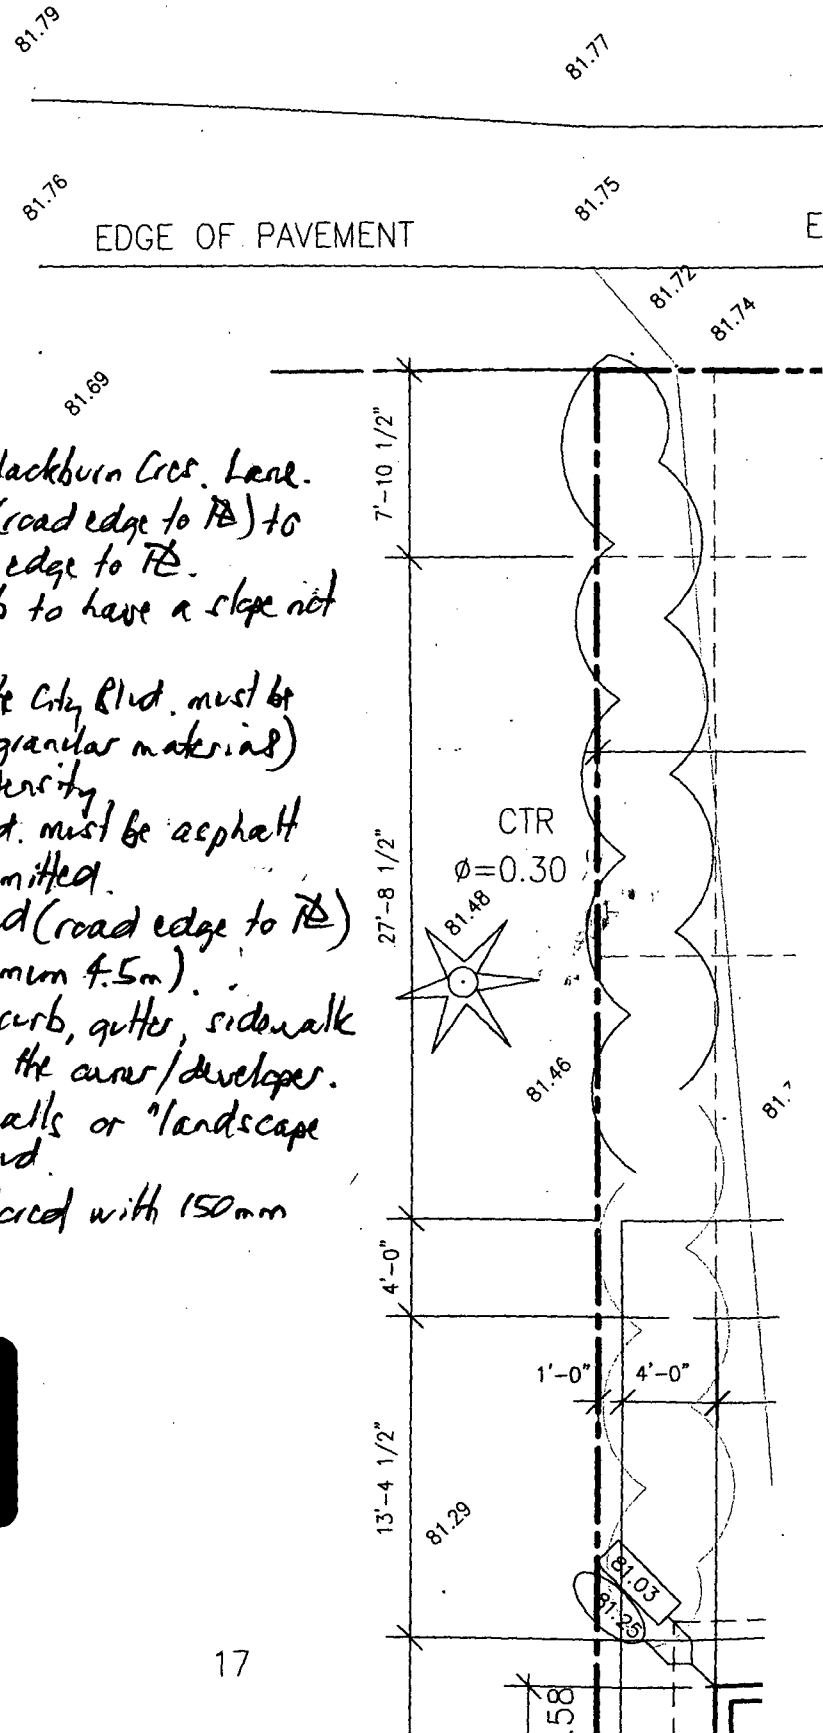 81.79
81.77
81.76
81.75
EDGE OF PAVEMENT
E
81.72
81.74
81.69
7'-10 1/2"
lackburn Cres. Lane.
(road edge to PL) to
edge to PL.
to have a slope not
City Blvd. must be
granular materials)
density
must be asphalt
mitted.
(road edge to PL)
mum 4.5m).
curb, gutter, sidewalk
the owner/developer.
alls or "landscape
with 150mm
27'-8 1/2"
CTR
Ø=0.30
81.48
81.46
81.
4'-0"
1'-0"
4'-0"
13'-4 1/2"
81.29
81.03
81.25
17
.58